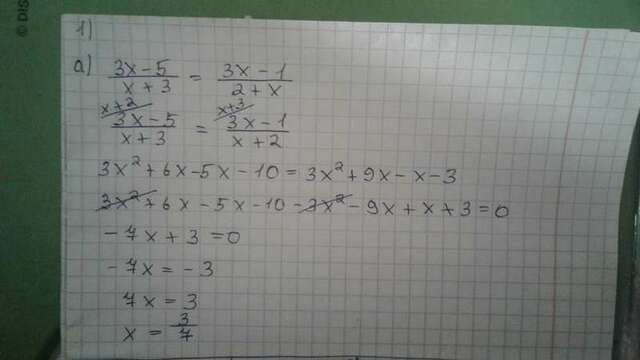 © DIS
1)
a) \frac{3x-5}{x+3} = \frac{3x-1}{2+x}
x+2 \frac{3x-5}{x+3} = x+3 \frac{3x-1}{x+2}
3x²+6x-5x-10=3x²+9x-x-3
3x²+6x-5x-10-3x²-9x+x+3=0
-4x+3=0
-4x=-3
4x=3
x=\frac{3}{4}